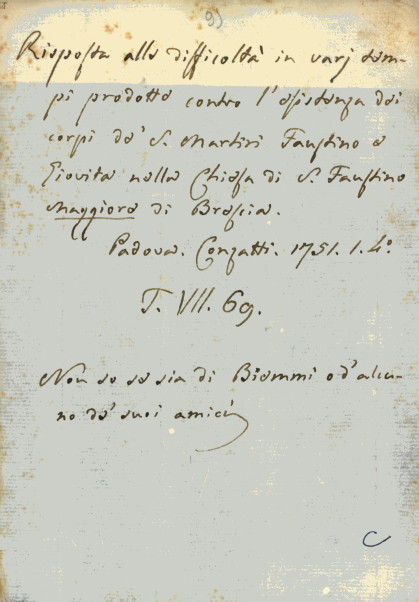 9)
Risposta alle difficoltà in varj tem-
pi prodotte contro l'esistenza dei
corpi de' S. Martiri Faustino e
Giovita nella Chiesa di S. Faustino
Maggiore di Brescia.
Padova. Conzatti. 1751. 1. 4º
T. VII. 69.
Non so se sia di Biemmi o d'alcu-
no de' suoi amici
C